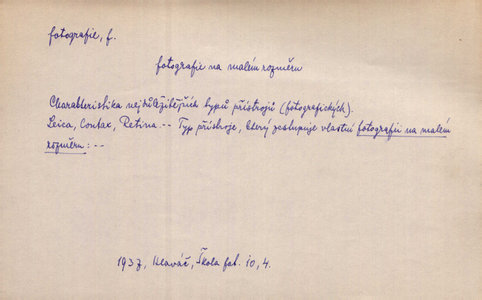 fotografie, f.
fotografie na malém rozměru
Charakteristika nejdůležitějších typů přístrojů (fotografických).
Leica, Contax, Retina. -- Typ přístroje, který zastupuje vlastní fotografii na malém
rozměru: --
1937, Hlaváč, Škola fot. 10, 4.